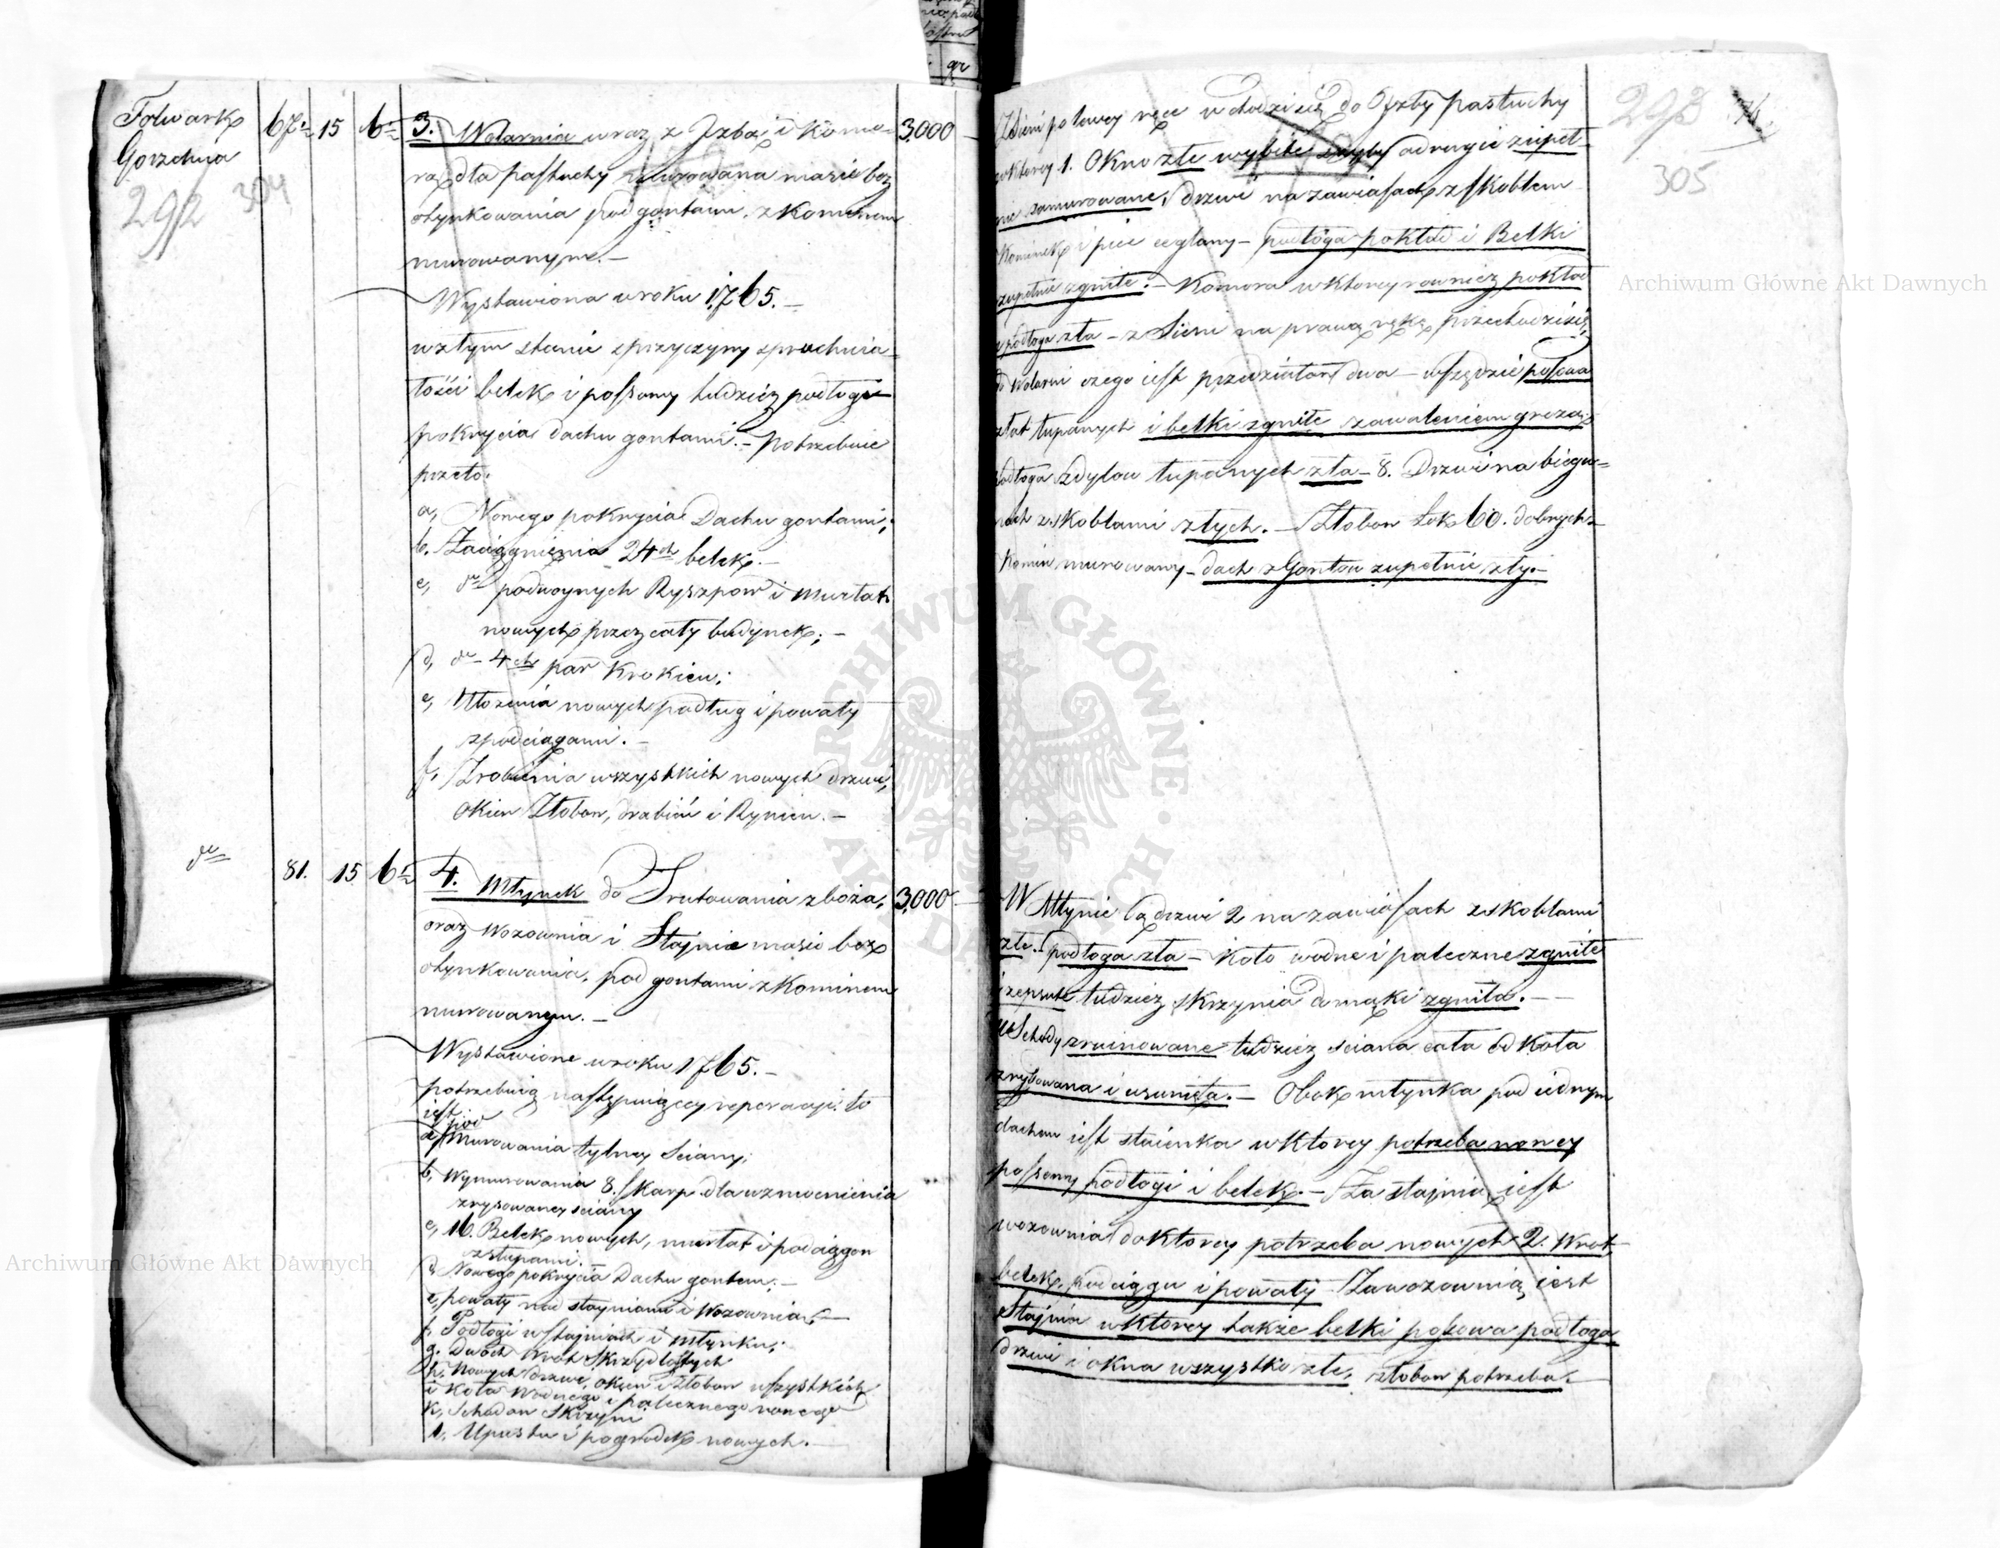 Folwark
Gorzchnia
292 304
67. 15 6
3. Wolarnia wraz z Izbą i Komo-
rą dla pastuchy murowana masie bez
otynkowania pod gontami, z Kominem
murowanym.
Wystawiona w roku 1765.
w złym stanie z przyczyny spruchnia-
łości belek i possowy tudzież podłogi
pokrycia dachu gontami. Potrzebuie
przeto.
a, Nowego pokrycia Dachu gontami;
b. Zaciągnienia 24ch belek.
c, do podwoynych Ryszpow i Murłat
nowych przez cały budynek;
d, do 4ch par Krokiew;
e, Ułożenia nowych podług i powały
z podciągami.
f, Zrobienia wszystkich nowych drzwi,
Okien Żłobow, drabin i Rynien.
3,000
do
81. 15 6
4. Młynek do Srutowania zboża,
oraz Wozownia i Stajnie masie bez
otynkowania, pod gontami z Kominem
murowanym.
Wystawione w roku 1765.
potrzebuią następuiącey reperacyi: to
iest
a, pod Murowania tylney Sciany;
b, Wymurowania 8. skarp dla wzmocnienia
zrysowaney sciany
c, 16. Belek nowych, murłat i podciągow
z słupami.
d, Nowego pokrycia Dachu gontem;
e, powały nad stayniami i Wozownią;
f, Podłogi w stajniach i młynku;
g. Dwoch Wrot Skrzydlastych
h. Nowych drzwi, okien i Żłobow wszystkich
i Koła Wodnego i palecznego nowego
k, Schodow Skrzyni
l. Upustu i pogrodek nowych.
3,000
Z Sieni po lewey ręce wchodzi się do Izby pastuchy
w ktorey 1. Okno złe wybite szyby a drugie zupeł-
nie zamurowane, drzwi na zawiasach z skoblem
Kominek i piec ceglany – podłoga pokład i Belki
zupełnie zgniłe. – Komora w ktorey rowniez pokład
i podłoga zła – z Sieni na prawą rękę przechodzi się
do Wolarni czego iest przedziałow dwa – wszędzie posowa
z łat łupanych i belki zgniłe zawaleniem grożą;
Podłoga z dylow łupanych zła – 8. Drzwi na biegu-
nach z skoblami złych. – Żłobow Łok 60. dobrych
Komin murowany – dach z Gontow zupełnie zły.
293
305
W Młynie są drzwi 2 na zawiasach z skoblami
złe. podłoga zła – Koło wodne i paleczne zgniłe
i zepsute tudzież skrzynia do mąki zgniła.
Schody zruinowane tudzież sciana cała od Koła
zrysowana i usunięta. – Obok młynka pod iednym
dachem iest staienka w Ktorey potrzeba nowey
possowy podłogi i belek. – Za stajnią iest
wozownia do Ktorey potrzeba nowych 2. Wrot
belek, podciągu i powały – Za wozownią iest
Stajnia w Ktorey także belki posowa podłoga
drzwi i okna wszystko złe, żłobow potrzeba.
Archiwum Główne Akt Dawnych
Archiwum Główne Akt Dawnych
ARCHIWUM GŁÓWNE AKT DAWNYCH